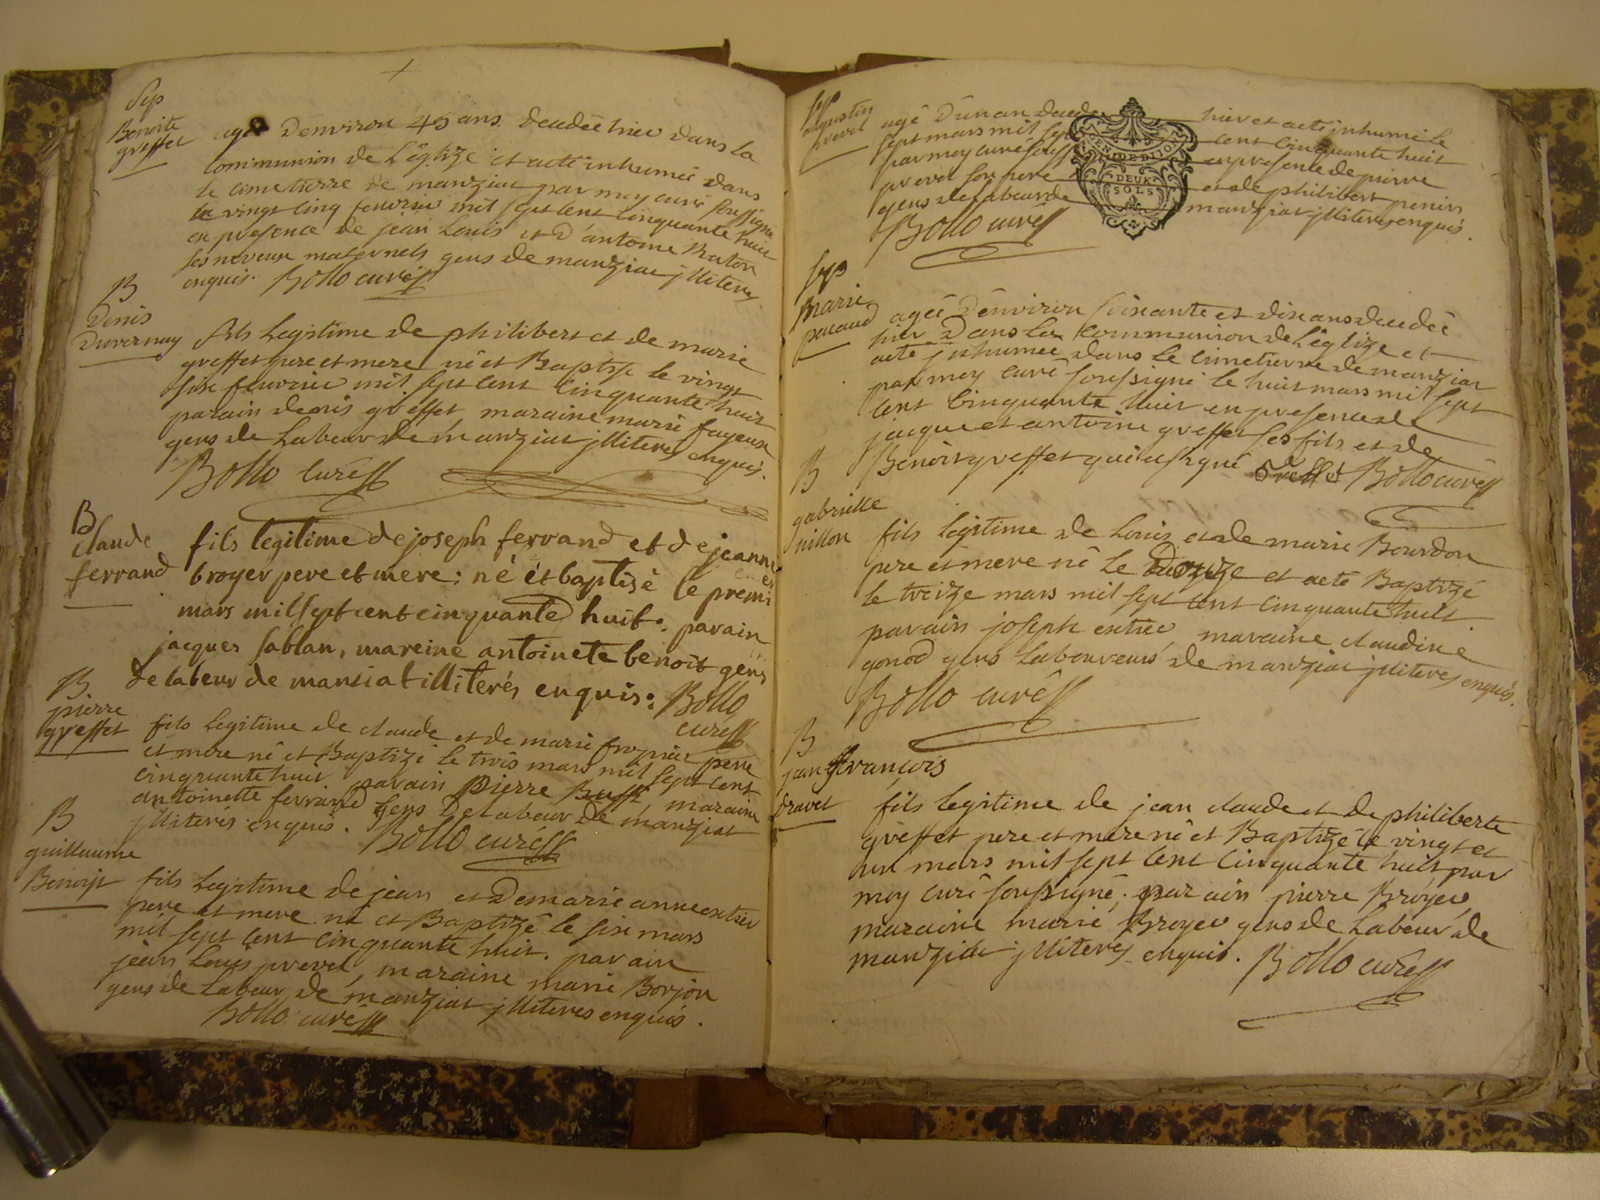 Sep
Benoite
greffet
agé D'environ 45 ans decedée hier dans la
communion de L'église et acté inhumée dans
le cimetierre de manziat par moy curé soussigné
le vingt cinq feuvrier mil sept cent cinquante huit
en presence de jean Louis et d'antoine
ses neveux maternels gens de manziat jlliteres
enquis. Bollo curé
B
Denis
Duvernay
fils legitime de philibert et de marie
greffet pere et mere né et Baptisé le vingt
six feuvrier mil sept cent cinquante huit
parain denis greffet maraine marie
gens de Labeur de manziat jlliteres enquis.
Bollo Curé
B
claude
ferrand
fils legitime de joseph ferrand et de jeanne
broyer pere et mere; né et baptisé le premier
mars mil sept cent cinquante huit; parain
jacques sablan, mareine antoinete benoit gens
de labeur de mansiat illiterés enquis: Bollo
curé
B
pierre
greffet
fils legitime de claude et de marie pere
et mere né et Baptizé le trois mars mil sept cent
cinquante huit parain pierre maraine
antoinette ferrand gens de Labeur de manziat
jlliteres enquis. Bollo curé
B
guillaume
Benoist
fils legitime de jean et de marie anne
pere et mere né et Baptizé le six mars
mil sept cent cinquante huit. parain
jean Louis prevel, maraine marie Borjon
gens de Labeur de manziat jlliteres enquis.
Bollo curé
Sep
augustin
prevel
agé D'un an decedé hier et acté inhumé le
sept mars mil sept cent cinquante huit
par moy curé en presence de pierre
prevel son pere et de philibert
gens de Labeur de manziat jlliteres enquis.
Bollo curé
GENI DE DIJON
DEUX
SOLS
Sep
marie
pacaud
agée D'environ soixante et dix ans decedée
hier Dans La Communion de L'église et
acté jnhumée dans le cimetierre de manziat
par moy curé soussigné le huit mars mil sept
cent cinquante huit en presence de
jacque et antoine greffet ses fils et de
Benoist greffet qui a signé Greffet Bollo curé
B
gabrielle
nillon
fils legitime de Louis et de marie Bourdon
pere et mere né le douze et acté Baptizé
le treize mars mil sept cent cinquante huit
parain joseph maraine claudine
gonod gens Laboureurs de manziat jlliteres enquis.
Bollo curé
B
jean françois
dravet
fils legitime de jean claude et de philiberte
greffet pere et mere né et Baptizé le vingt et
un mars mil sept cent cinquante huit par
moy curé soussigné. parain pierre Broyer
maraine marie Broyer gens de Labeur de
manziat jlliteres enquis. Bollo curé